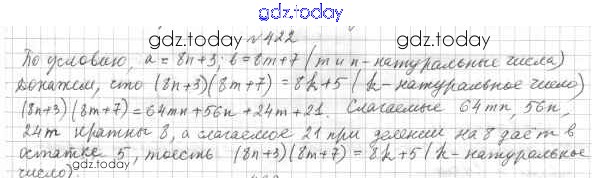 gdz.today
gdz.today
№422
По условию, a = 8n+3; b = 8m+7 (m и n - натуральные числа)
Докажем, что (8n+3)(8m+7) = 8k+5 (k - натуральное число)
(8n+3)(8m+7) = 64mn + 56n + 24m + 21. Слагаемые 64mn, 56n,
24m кратны 8, а слагаемое 21 при делении на 8 даёт в
остатке 5, тоесть (8n+3)(8m+7) = 8k+5 (k - натуральное
число).
gdz.today